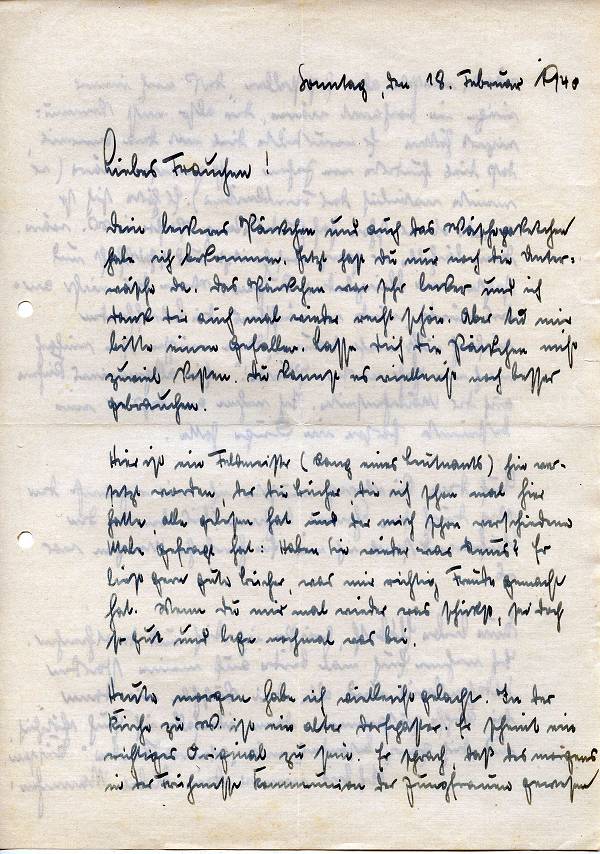 Sonntag, den 18. Februar 1940
Liebes Frauchen!
Dein leckeres Päckchen und auch das Wäschepaketchen
habe ich bekommen. Jetzt hast Du nur noch die Unter-
wäsche da. Das Päckchen war sehr lecker und ich
dank Dir auch mal wieder recht schön. Aber tu mir
bitte einen Gefallen. Lasse Dich die Päckchen nicht
zuviel kosten. Du kannst es vielleicht noch besser
gebrauchen.
Hier ist ein Feldmeister (Rang eines Leutnants) hin ver-
setzt worden, der die Bücher die ich schon mal hier
hatte alle gelesen hat und der mich schon verschiedene
Male gefragt hat: Haben Sie wieder was Neues? Er
liest gern gute Bücher, was mir richtig Freude gemacht
hat. Wenn Du mir mal wieder was schickst, sei doch
so gut und lege nochmal was bei.
Heute morgen habe ich vielleicht gelacht. In der
Kirche zu W. ist ein alter Dorfpastor. Er scheint ein
richtiges Original zu sein. Er sprach, daß des morgens
in der Frühmesse Kommunion der Jungfrauen gewesen